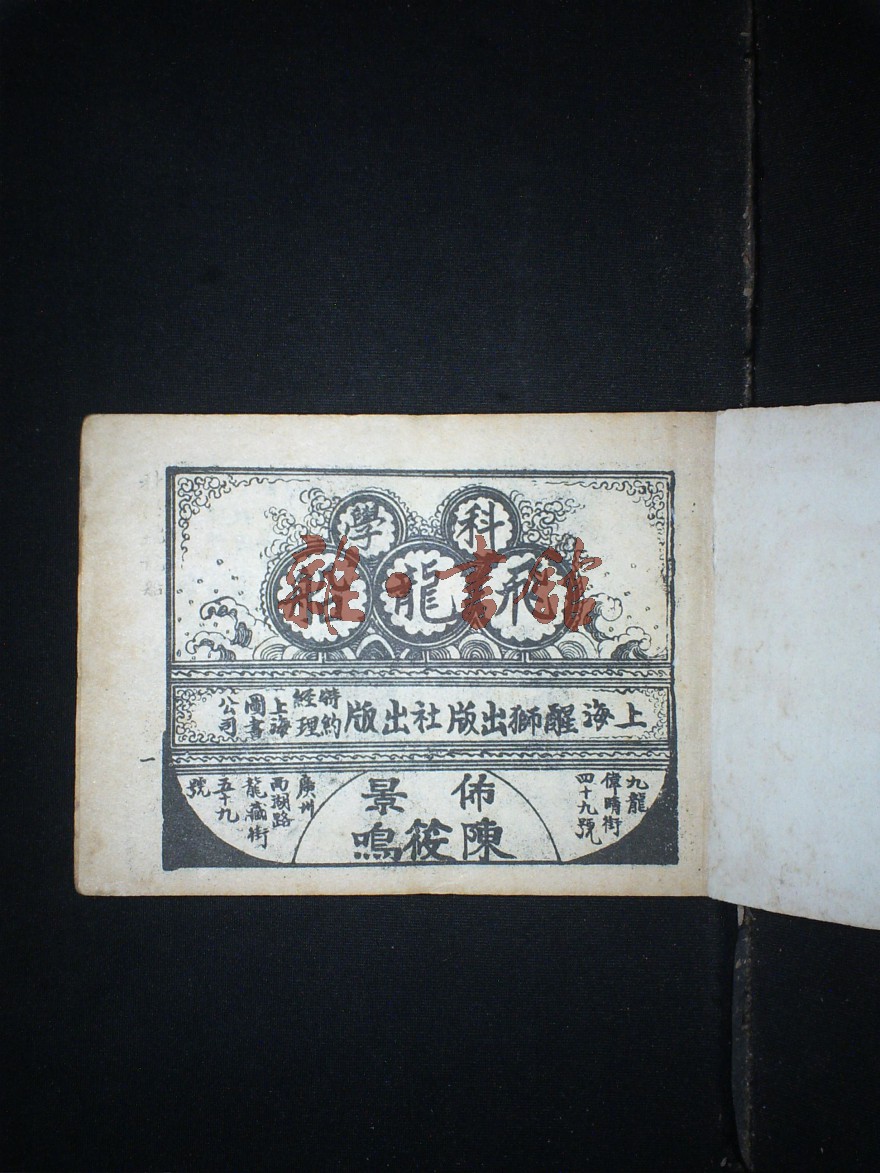 科學
飛龍船
上海醒獅出版社出版
特約
經理
上海
圖書
公司
九龍
偉晴街
四十九號
佈景
陳筱鳴
廣州
西湖路
龍藏街
五十九
號
一
雜·書館